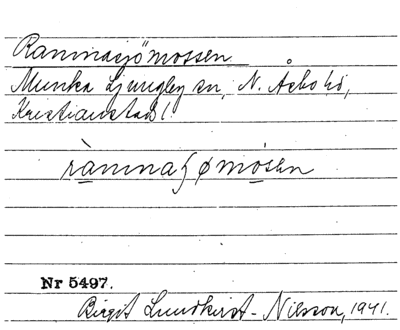 Rammasjömossen
Munka Ljungby sn, N. Åsbo hd,
Kristianstad l.
ràmmaʃømòsən
Nr 5497.
Birgit Lundkvist-Nilsson, 1941.